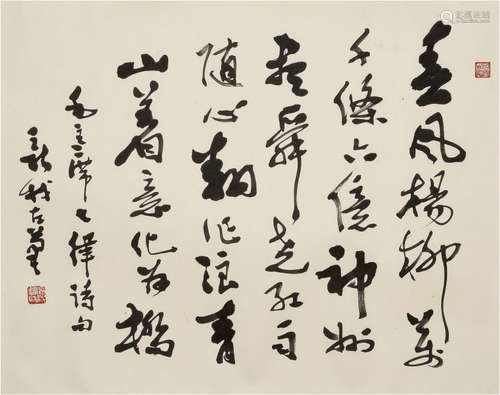 春风杨柳万
千條六億神州
盡舜尧红雨
随心翻作浪青
山着意化为橋
毛主席七律詩句